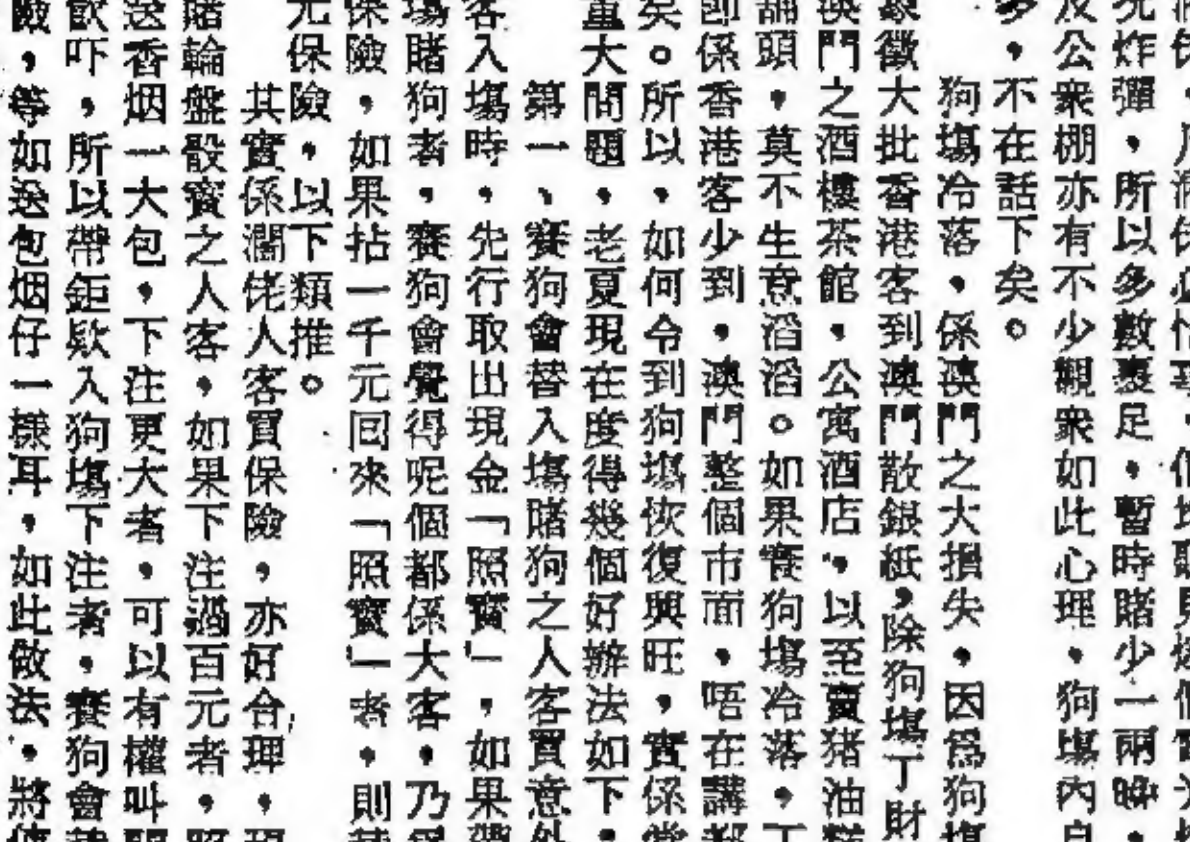 炸彈，所以多數裹足，暫時賭少一兩晚，
及公衆棚亦有不少觀衆如此心理，狗塲內自
多，不在話下矣。
狗塲冷落，係澳門之大損失，因爲狗塲
象徵大批香港客到澳門散銀紙，除狗塲丁財
澳門之酒樓茶館，公寓酒店，以至賣猪油糕
頭，莫不生意滔滔。如果賽狗塲冷落，丁
即係香港客少到，澳門整個市面，唔在講都
矣。所以，如何令到狗塲恢復興旺，實係當
重大問題，老夏現在度得幾個好辦法如下：
第一、賽狗會替入塲賭狗之人客買意外
客入塲時，先行取出現金「照寶」，如果帶
塲賭狗者，賽狗會覺得呢個都係大客，乃爲
保險，如果拈一千元回來「照寶」者，則替
元保險，以下類推。
其實係濶佬人客買保險，亦好合理，現
賭輪盤骰寶之人客，如果下注過百元者，照
送香烟一大包，下注更大者，可以有權叫
飲吓，所以帶鉅欵入狗塲下注者，賽狗會替
險，等如送包烟仔一樣耳，如此做法，將